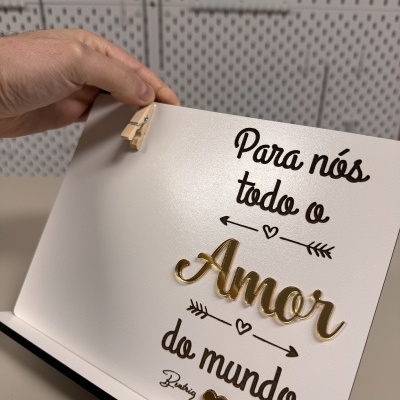 Para nós
todo o
Amor
do mundo
Beatriz